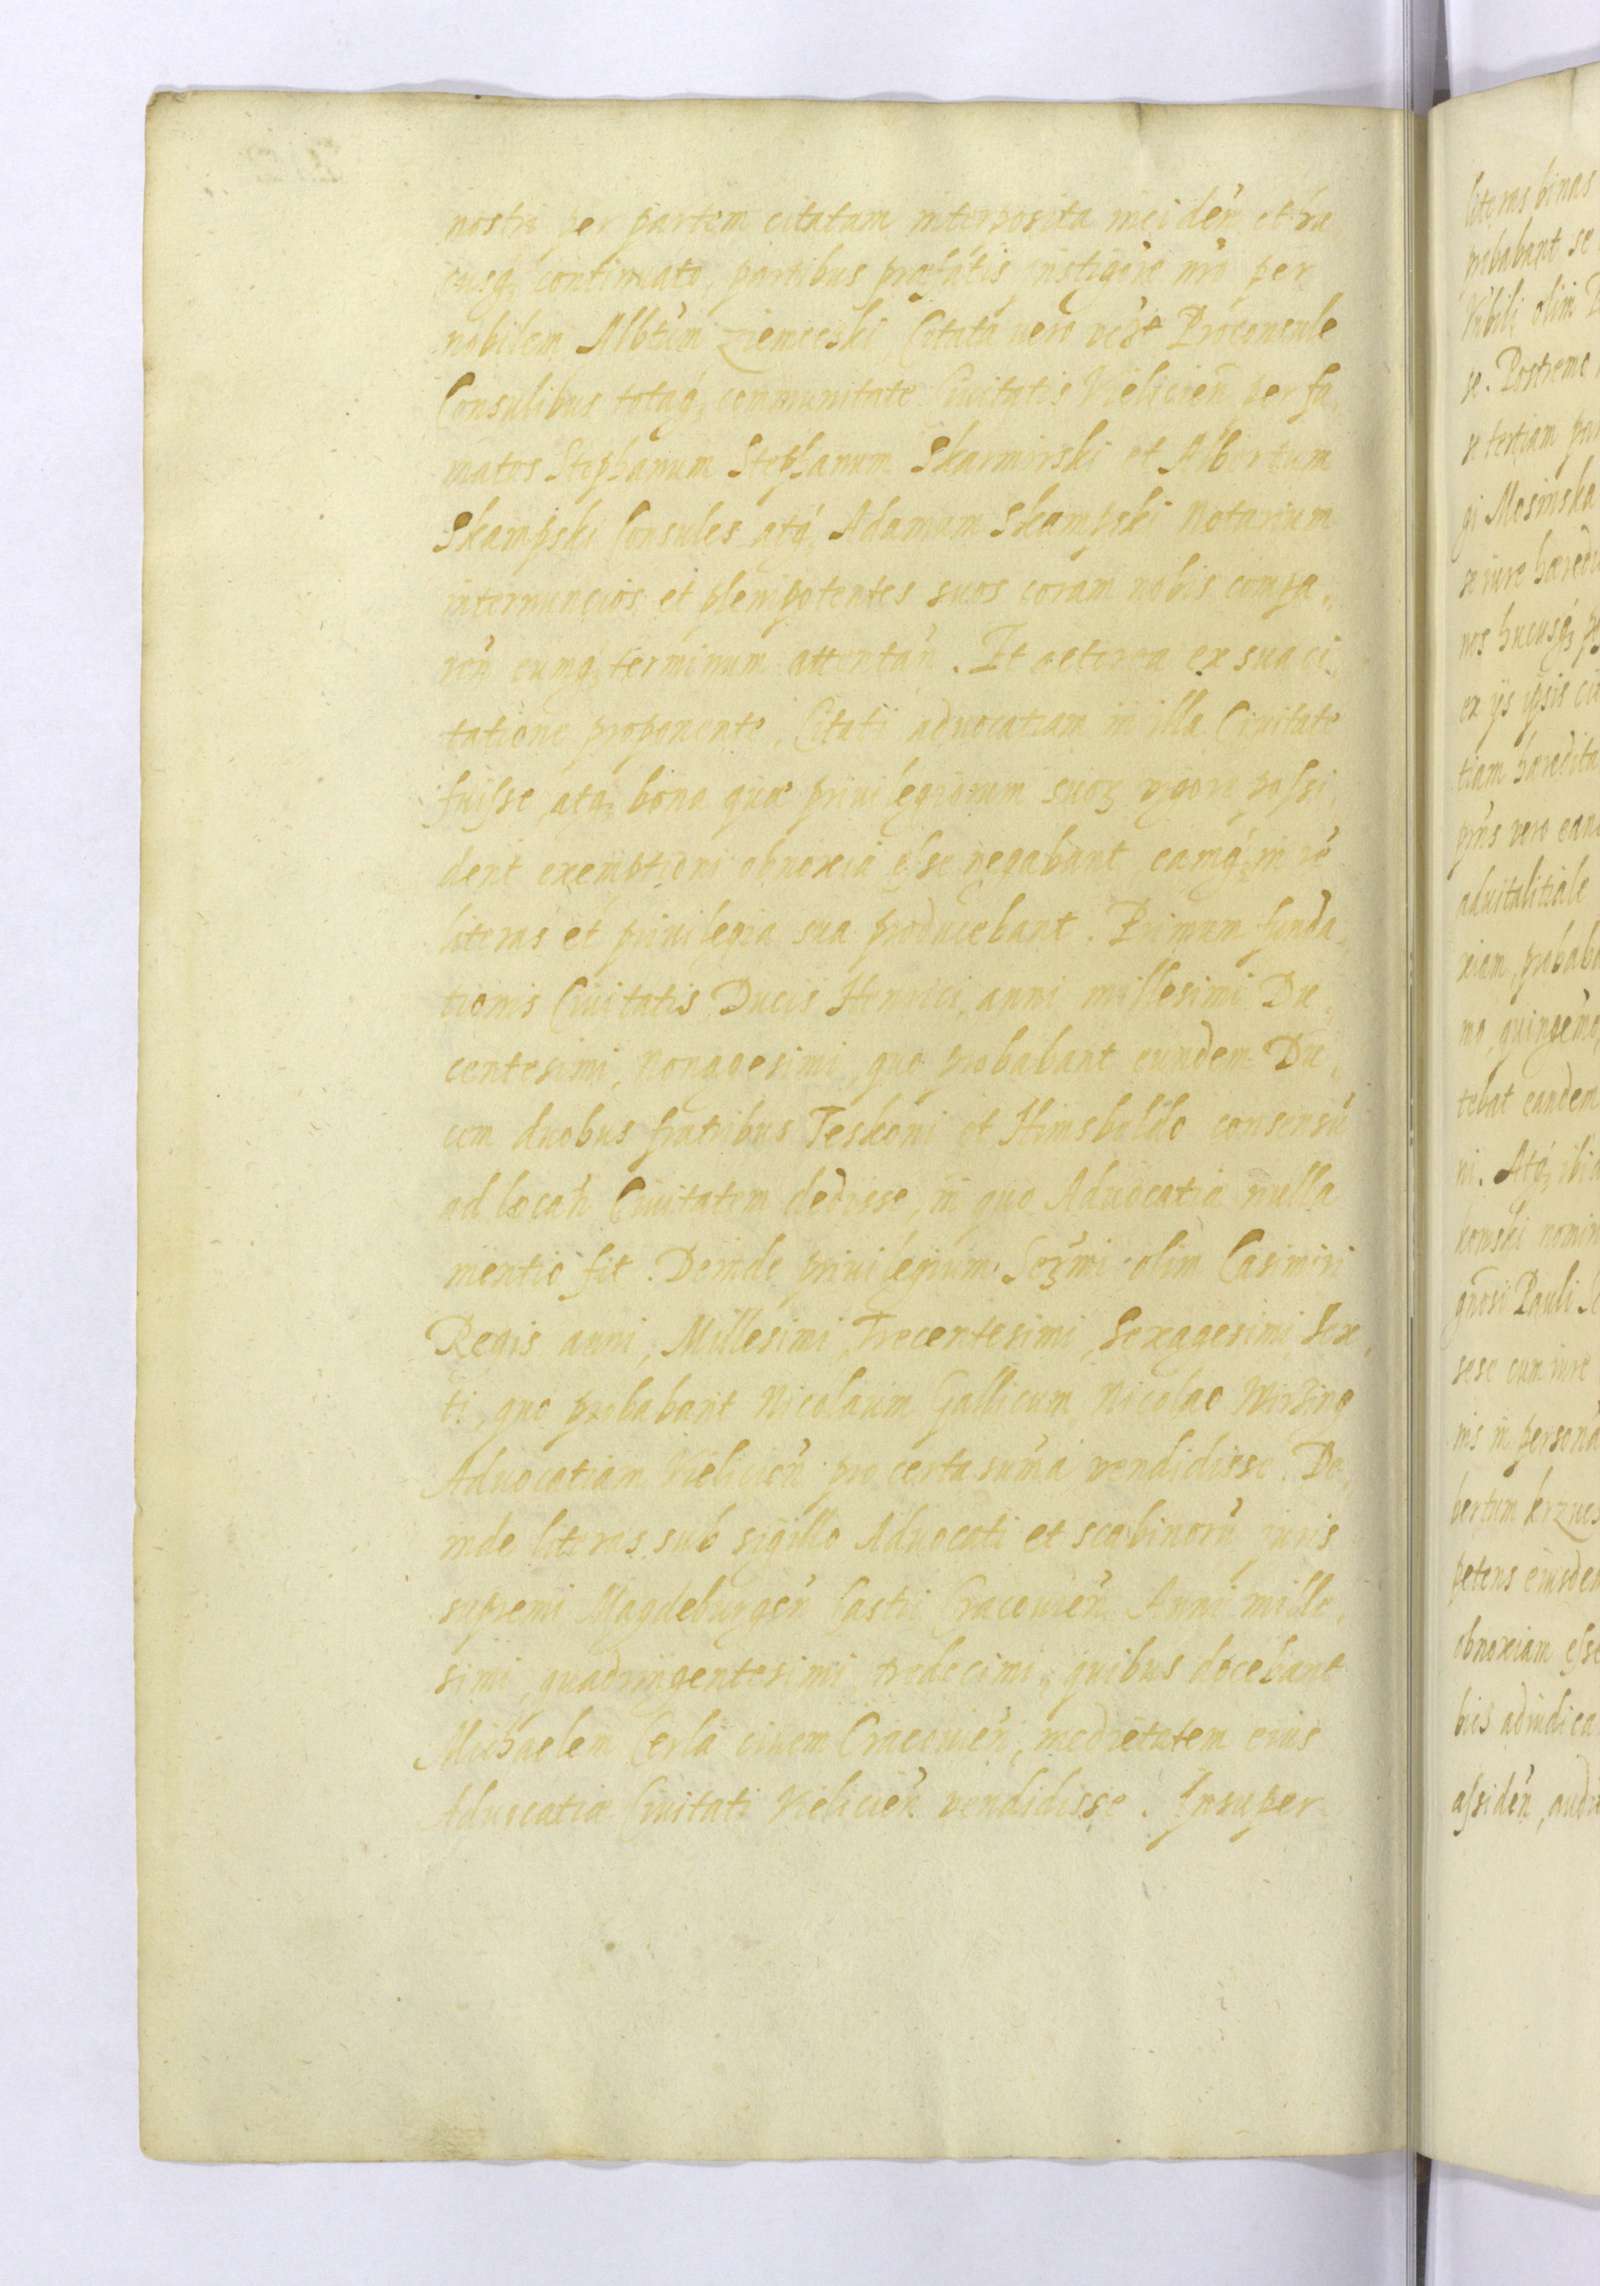 nostri per partem citatam interposita inciden et hu
cusq; continuato, partibus praefatis instigore nro per
nobilem Albtum Ziemecski, Citata vero vidzt Proconsule
Consulibus totaq; communitate Civitatis Vielicien per fa,
matos Stephanum Stephanum Skarmirski et Albertum
Skampski Consules atq; Adamum Skampski Notarium
internuncios et plenipotentes suos coram nobis compa,,
ren eumq; terminum attentan. Et actorea ex sua ci,
tatione proponente, Citati advocatiam in illa Civitate
fuisse, atq; bona quae privilegiorum suoz vigore possi,
dent exemptioni obnoxia esse negabant, eamq; in re
literas et privilegia sua producebant. Primum funda,,
tionis Civitatis Ducis Henrici, anni millesimi Du,,
centesimi, Nonagesimi, quo probabant eundem Du,,
cem duobus fratribus Jeskoni et Himsboldo consensu
ad locan Civitatem dedisse, in quo Advocatiae nulla
mentio fit. Deinde privilegium Serzmi olim Casimiri
Regis anni, Millesimi, Trecentesimi, Sexagesimi Sex,
ti, quo probabant Nicolaum Gallicum Nicolao Wirzing
Advocatiam Vielicien pro certa suma vendidisse. De,
inde literas sub sigillo Advocati et scabinoru juris
supremi Magdeburgen Castri Cracovien Anni mille,
simi, quadringentesimi, tredecimi, quibus docebant
Michaelem Cerla civem Cracovien, medietatem eius
Advocatiae Civitati Vielicien vendidisse. Insuper
literas binas
probabant se
Nobili olim
se. Postremo
se tertiam
gi Mosinska
se iure haeredi
nos hucusq;
ex ijs ipsis
tiam haeredita
prus vero
advitalitiale
xiam, probaba
mo, quingemo,
tebat eandem
ni. Atq; ibi
kowski nomin
gnosi Pauli
sese cum iure
nis in persona
bertum krzyes
petens eiusdem
obnoxiam esse
bis adiudica
assiden, audi